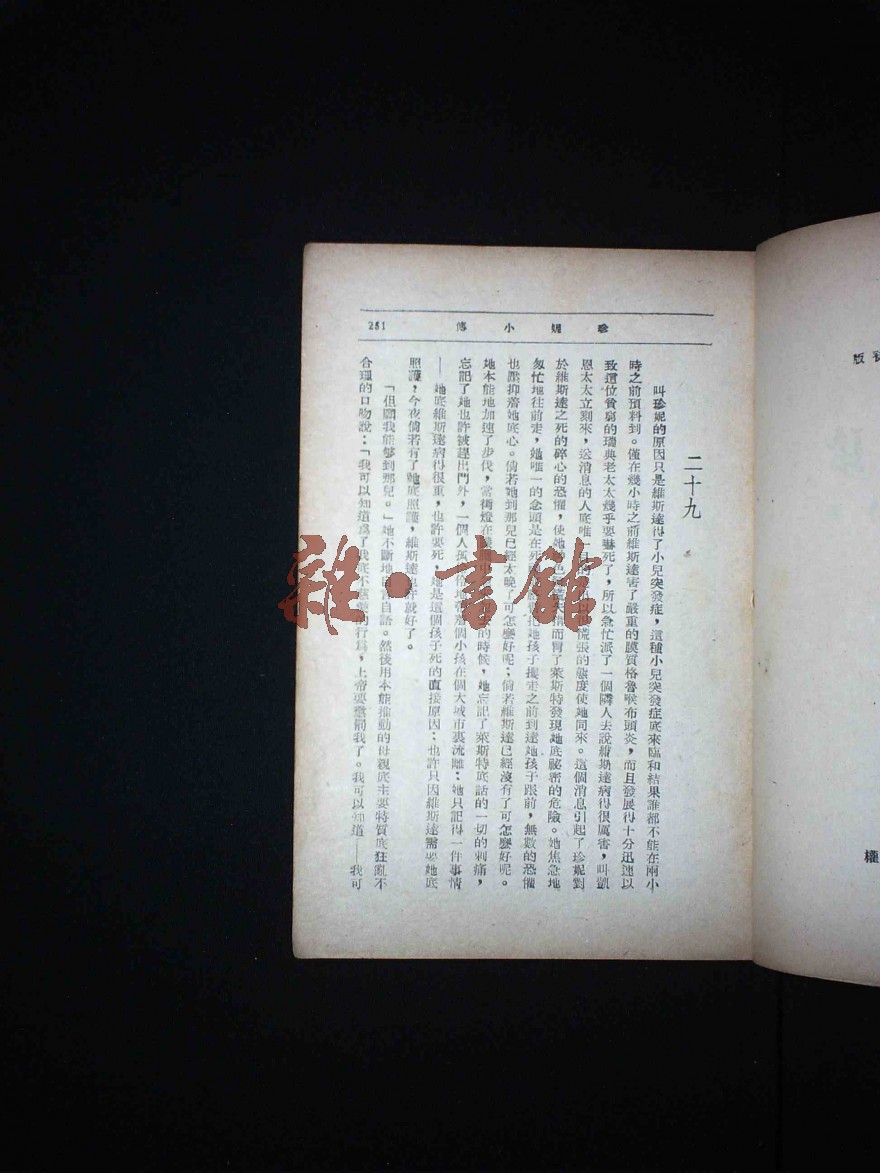 版
權
傳小妮珍
251
二十九
叫珍妮的原因只是維斯達得了小兒突發症，這種小兒突發症底來臨和結果誰都不能在兩小
時之前預料到。僅在幾小時之前維斯達害了嚴重的膜質格魯喉布頭炎，而且發展得十分迅速以
致這位貧窮的瑞典老太太幾乎要嚇死了，所以急忙派了一個隣人去說維斯達病得很厲害，叫凱
恩太太立刻來，送消息的人底唯一 以 慌張的態度使她同來。這個消息引起了珍妮對
於維斯達之死的碎心的恐懼，使她 而冒了萊斯特發現她底祕密的危險。她焦急地
匆忙地往前走，她唯一的念頭是在死 把她孩子攫走之前到達她孩子跟前，無數的恐懼
也壓抑着她底心。倘若她到那兒已經太晚了可怎麼好呢；倘若維斯達已經沒有了可怎麼好呢。
她本能地加速了步伐，當街燈在 中 去的時候，她忘記了萊斯特底話的一切的刺痛，
忘記了她也許被趕出門外，一個人孤 地帶着個小孩在個大城市裏流離；她只記得一件事情
——她底維斯達病得很重，也許要死，她是這個孩子死的直接原因；也許只因維斯達需要她底
照護，今夜倘若有了她底照護，維斯達也許就好了。
「但願我能够到那兒。」她不斷地自言自語。然後用本能推動的母親底主要特質底狂亂不
合理的口吻說：「我可以知道爲了我底不 的行爲，上帝要懲罰我了。我可以知道——我可
雜·書館